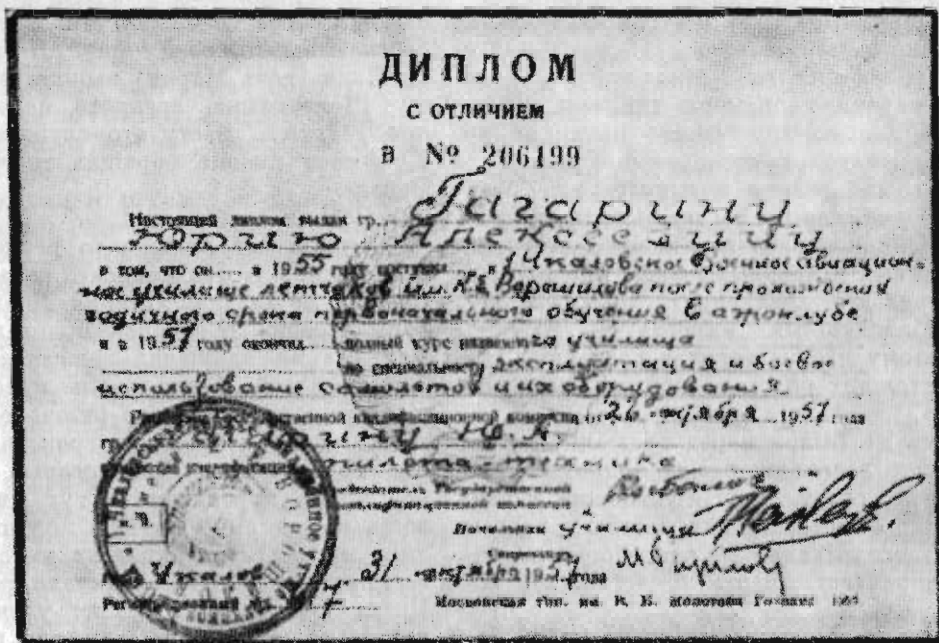 ДИПЛОМ
С ОТЛИЧИЕМ
В № 206199
Настоящий диплом выдан гр. Гагарину
Юрию Алексеевичу
в том, что он в 1955 году поступил в 1 Чкаловское Военное авиацион-
ное училище летчиков им. К.Е. Ворошилова после прохождения
годичного срока первоначального обучения в аэроклубе
и в 1957 году окончил полный курс названного училища
по специальности эксплуатация и боевое
использование самолетов и их оборудования
Решением Государственной квалификационной комиссии от 26 октября 1957 года
гр. Гагарину Ю.А.
квалификация пилота-техника
Председатель Государственной
квалификационной комиссии
Начальник училища
Секретарь
Чкалов 31 октября 1957 года
Регистрационный № 7
Московская тип. им. Гознака